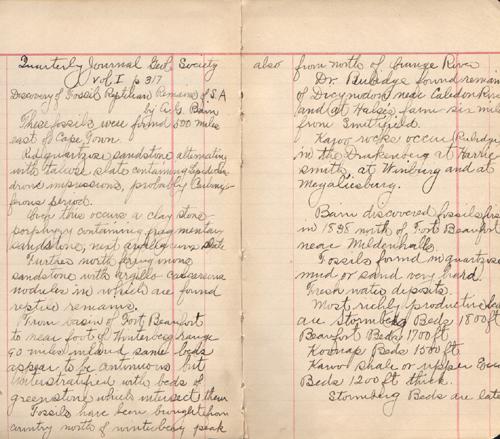 Quarterly Journal Geol. Society
Vol. I p 317
Discovery of Fossil Reptilian Remains of S.A
by A.G. Bain
These fossils were found 500 miles
east of Cape Town.
Red quartzose sandstone alternating
with talcose slate containing Lepidoden-
drons impressions, probably Carbon-
ferous period.
Over this occurs a clay stone
porphyry containing fragmentary
sandstone, next argillaceous slate
Further north ferruginous
sandstone with argillo calcareous
nodules in which are found
reptile remains.
From basin of Fort Beaufort
to near foot of Winterberg range
90 miles inland same beds
appear to be continuous but
interstratified with beds of
greenstone which intersect them
Fossils have been brought from
country north of winterberg peak
also from north of Orange River
Dr. Rubidge found remains
of Dicynodon near Caledon River
and (at Halse's farm six miles
from Smithfield.
Karoo rocks occur (Rubidge)
in the Drackenberg at Harrie
smith, at Winburg and at
Megaliesburg.
Bain discovered fossils first
in 1838 north of Fort Beaufort
near Mildenhalls.
Fossils found in quartzose
mud or sand very hard.
Fresh water deposits.
Most richly productive beds
are Stormberg Beds 1800 ft
Beaufort Beds 1700 ft
Koonap Beds 1500 ft
Karoo shale or upper Ecca
Beds 1200 ft thick.
Stormberg Beds are late